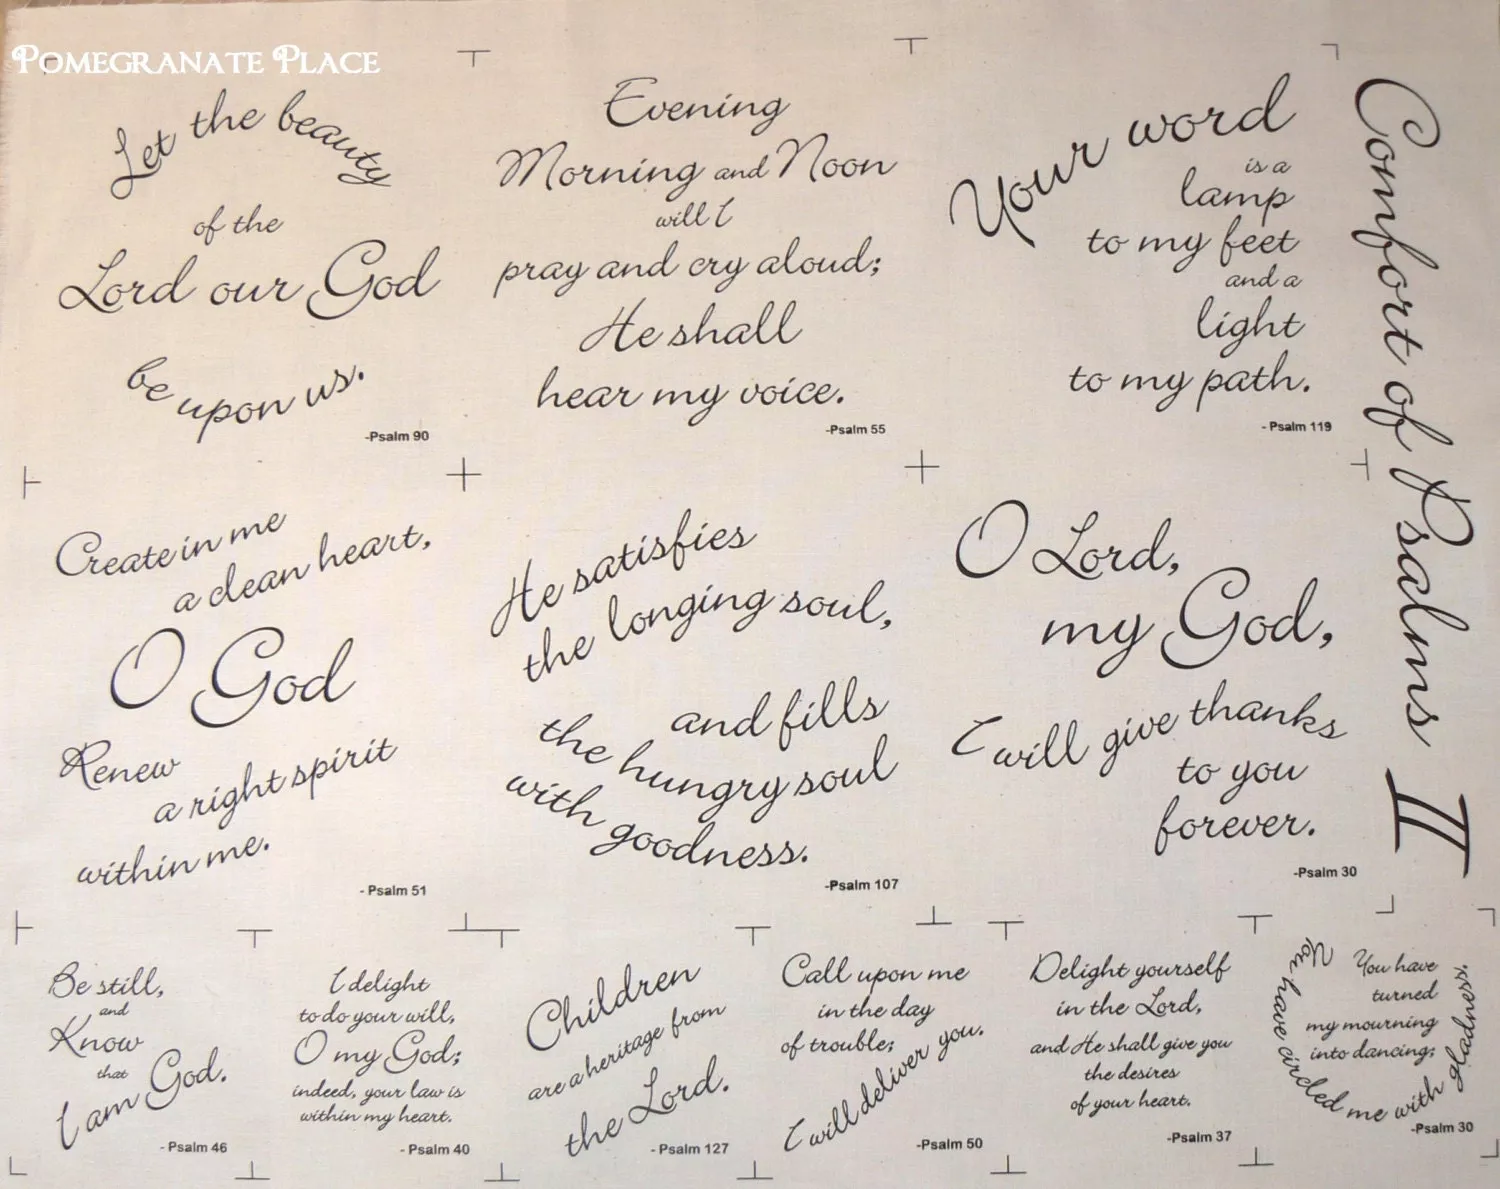 Pomegranate Place
Let the beauty
of the
Lord our God
be upon us.
-Psalm 90
Evening
Morning and Noon
will I
pray and cry aloud;
He shall
hear my voice.
-Psalm 55
Your word
is a
lamp
to my feet
and a
light
to my path.
- Psalm 119
Comfort of Psalms II
Create in me
a clean heart,
O God
Renew
a right spirit
within me.
- Psalm 51
He satisfies
the longing soul,
and fills
the hungry soul
with goodness.
-Psalm 107
O Lord,
my God,
I will give thanks
to you
forever.
-Psalm 30
Be still,
and
Know
that
I am God.
- Psalm 46
I delight
to do your will,
O my God;
indeed, your law is
within my heart.
- Psalm 40
Children
are a heritage from
the Lord.
- Psalm 127
Call upon me
in the day
of trouble;
I will deliver you.
-Psalm 50
Delight yourself
in the Lord,
and He shall give you
the desires
of your heart.
-Psalm 37
You have
turned
my mourning
into dancing;
You have circled me with gladness.
-Psalm 30